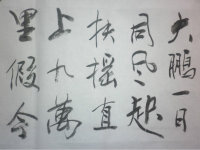 大鹏一日
同风起
扶摇直
上九萬
里假令